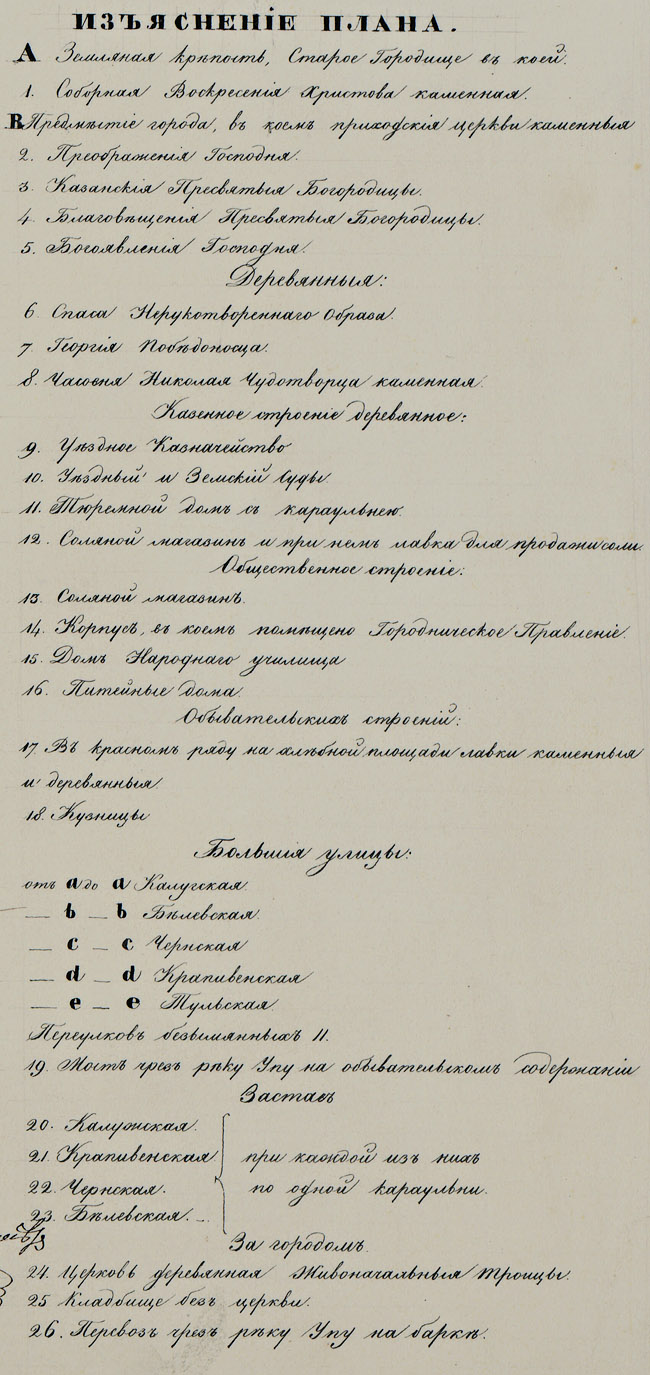 ИЗЪЯСНЕНІЕ ПЛАНА.
А Земляная крѣпость, Старое Городище въ коей:
1. Соборная Воскресенія Христова каменная.
В. Предмѣстіе города, въ коемъ приходскія церкви каменныя
2. Преображенія Господня.
3. Казанскія Пресвятыя Богородицы.
4. Благовѣщенія Пресвятыя Богородицы.
5. Богоявленія Господня.
Деревянныя:
6. Спаса Нерукотвореннаго Образа.
7. Георгія Побѣдоносца.
8. Часовня Николая Чудотворца каменная.
Казенное строеніе деревянное:
9. Уѣздное Казначейство
10. Уѣздный и Земскій Суды.
11. Тюремной домъ съ караульнею.
12. Соляной магазинъ и при немъ лавка для продажи соли.
Общественное строеніе:
13. Соляной магазинъ.
14. Корпусъ, въ коемъ помѣщено Городническое Правленіе.
15. Домъ Народнаго училища
16. Питейные дома.
Обывательскихъ строеній:
17. Въ красномъ ряду на хлѣбной площади лавки каменныя
и деревянныя.
18. Кузницы
Большія улицы:
отъ a до a Калугская.
— b — b Бѣлевская.
— c — c Чернская
— d — d Крапивенская
— e — e Тульская.
Переулковъ безымянныхъ 11.
19. Мостъ чрезъ рѣку Упу на обывательскомъ содержаніи
Заставъ
20. Калужская.
21. Крапивенская при каждой изъ нихъ
22. Чернская. по одной караульни.
23. Бѣлевская.
За городомъ.
24. Церковь деревянная Живоначальныя Троицы.
25 Кладбище безъ церкви.
26. Перевозъ чрезъ рѣку Упу на баркѣ.